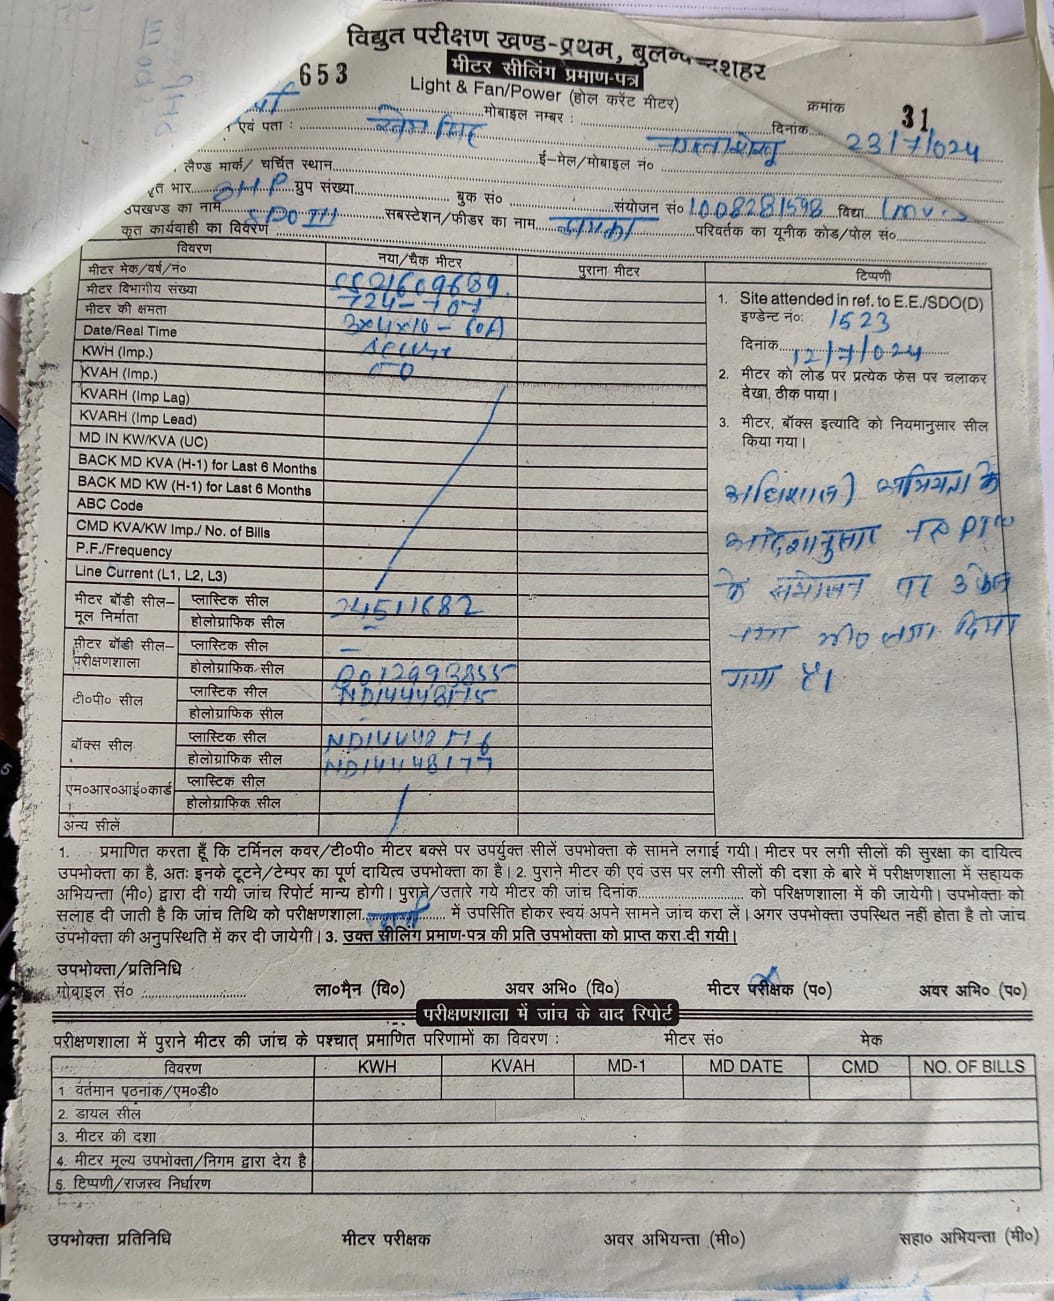 विद्युत परीक्षण खण्ड-प्रथम, बुलन्दशहर
मीटर सीलिंग प्रमाण-पत्र
653
Light & Fan/Power (होल करेंट मीटर)
क्रमांक 31
मोबाइल नम्बर :
दिनांक 23/7/024
एवं पता :
लैण्ड मार्क/ चर्चित स्थान
ई-मेल/मोबाइल नं०
कृत भार 3HP ग्रुप संख्या
बुक सं०
संयोजन सं० 1008281598 विद्या
उपखण्ड का नाम SDO III सबस्टेशन/फीडर का नाम
परिवर्तक का यूनीक कोड/पोल सं०
कृत कार्यवाही का विवरण
विवरण नया/चैक मीटर पुराना मीटर टिप्पणी
मीटर मेक/वर्ष/नं० SS21609689
मीटर विभागीय संख्या 724-707
मीटर की क्षमता 3x4x10-60A
Date/Real Time
KWH (Imp.)
KVAH (Imp.)
KVARH (Imp Lag)
KVARH (Imp Lead)
MD IN KW/KVA (UC)
BACK MD KVA (H-1) for Last 6 Months
BACK MD KW (H-1) for Last 6 Months
ABC Code
CMD KVA/KW Imp./ No. of Bills
P.F./Frequency
Line Current (L1, L2, L3)
मीटर बॉडी सील– मूल निर्माता प्लास्टिक सील 24511682
होलोग्राफिक सील –
मीटर बॉडी सील– परीक्षणशाला प्लास्टिक सील –
होलोग्राफिक सील 0012993855
टी०पी० सील प्लास्टिक सील ND14448175
होलोग्राफिक सील
बॉक्स सील प्लास्टिक सील ND14448176
होलोग्राफिक सील ND14448177
एम०आर०आई०कार्ड प्लास्टिक सील
होलोग्राफिक सील
अन्य सीलें
1. Site attended in ref. to E.E./SDO(D)
इण्डेन्ट नं० 1523
दिनांक 12/7/024
2. मीटर को लोड पर प्रत्येक फेस पर चलाकर
देखा, ठीक पाया।
3. मीटर, बॉक्स इत्यादि को नियमानुसार सील
किया गया।
अधिशासी अभियन्ता के
आदेशानुसार
के संयोजन पर
लगा दिया
गया है।
1. प्रमाणित करता हूँ कि टर्मिनल कवर/टी०पी० मीटर बक्से पर उपर्युक्त सीलें उपभोक्ता के सामने लगाई गयी। मीटर पर लगी सीलों की सुरक्षा का दायित्व
उपभोक्ता का है, अतः इनके टूटने/टेम्पर का पूर्ण दायित्व उपभोक्ता का है। 2. पुराने मीटर की एवं उस पर लगी सीलों की दशा के बारे में परीक्षणशाला में सहायक
अभियन्ता (मी०) द्वारा दी गयी जांच रिपोर्ट मान्य होगी। पुराने/उतारे गये मीटर की जांच दिनांक को परिक्षणशाला में की जायेगी। उपभोक्ता को
सलाह दी जाती है कि जांच तिथि को परीक्षणशाला में उपसित होकर स्वयं अपने सामने जांच करा लें। अगर उपभोक्ता उपस्थित नहीं होता है तो जांच
उपभोक्ता की अनुपस्थिति में कर दी जायेगी। 3. उक्त सीलिंग प्रमाण-पत्र की प्रति उपभोक्ता को प्राप्त करा दी गयी।
उपभोक्ता/प्रतिनिधि
मोबाइल सं० लाo मैन (वि०) अवर अभि० (वि०) मीटर परीक्षक (प०) अवर अभि० (प०)
परीक्षणशाला में जांच के वाद रिपोर्ट
परीक्षणशाला में पुराने मीटर की जांच के पश्चात् प्रमाणित परिणामों का विवरण : मीटर सं० मेक
विवरण KWH KVAH MD-1 MD DATE CMD NO. OF BILLS
1 वर्तमान पृठनांक/एम०डी०
2. डायल सील
3. मीटर की दशा
4. मीटर मूल्य उपभोक्ता/निगम द्वारा देय है
5. टिप्पणी/राजस्व निर्धारण
उपभोक्ता प्रतिनिधि मीटर परीक्षक अवर अभियन्ता (मी०) सहा० अभियन्ता (मी०)